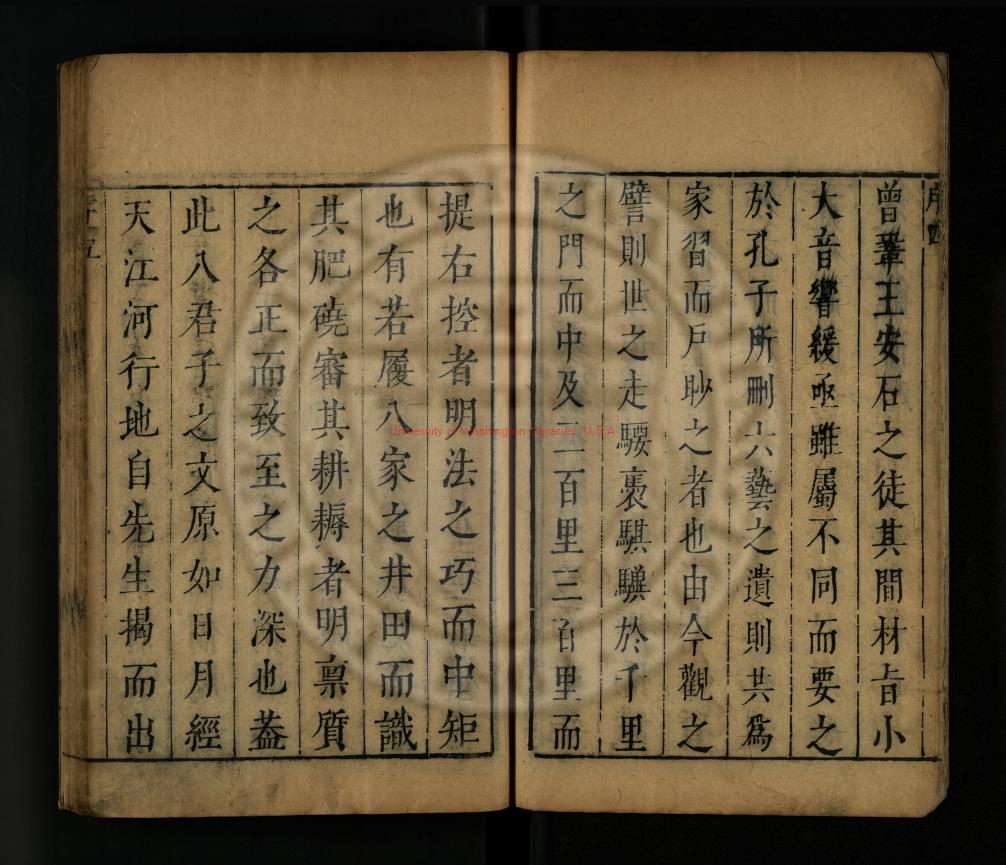 序四
曾鞏王安石之徒其間材旨小
大音響緩亟雖屬不同而要之
於孔子所刪六藝之遺則共為
家習而戶眇之者也由今觀之
譬則世之走騕褭騏驥於千里
之門而中及二百里三百里而
提右控者明法之巧而中矩
也有若履八家之井田而識
其肥磽審其耕耨者明稟質
之各正而致至之力深也蓋
此八君子之文原如日月經
天江河行地自先生揭而出
University of Washington Libraries, U.S.A